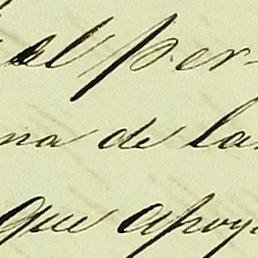 el per-
na de la
que apoy